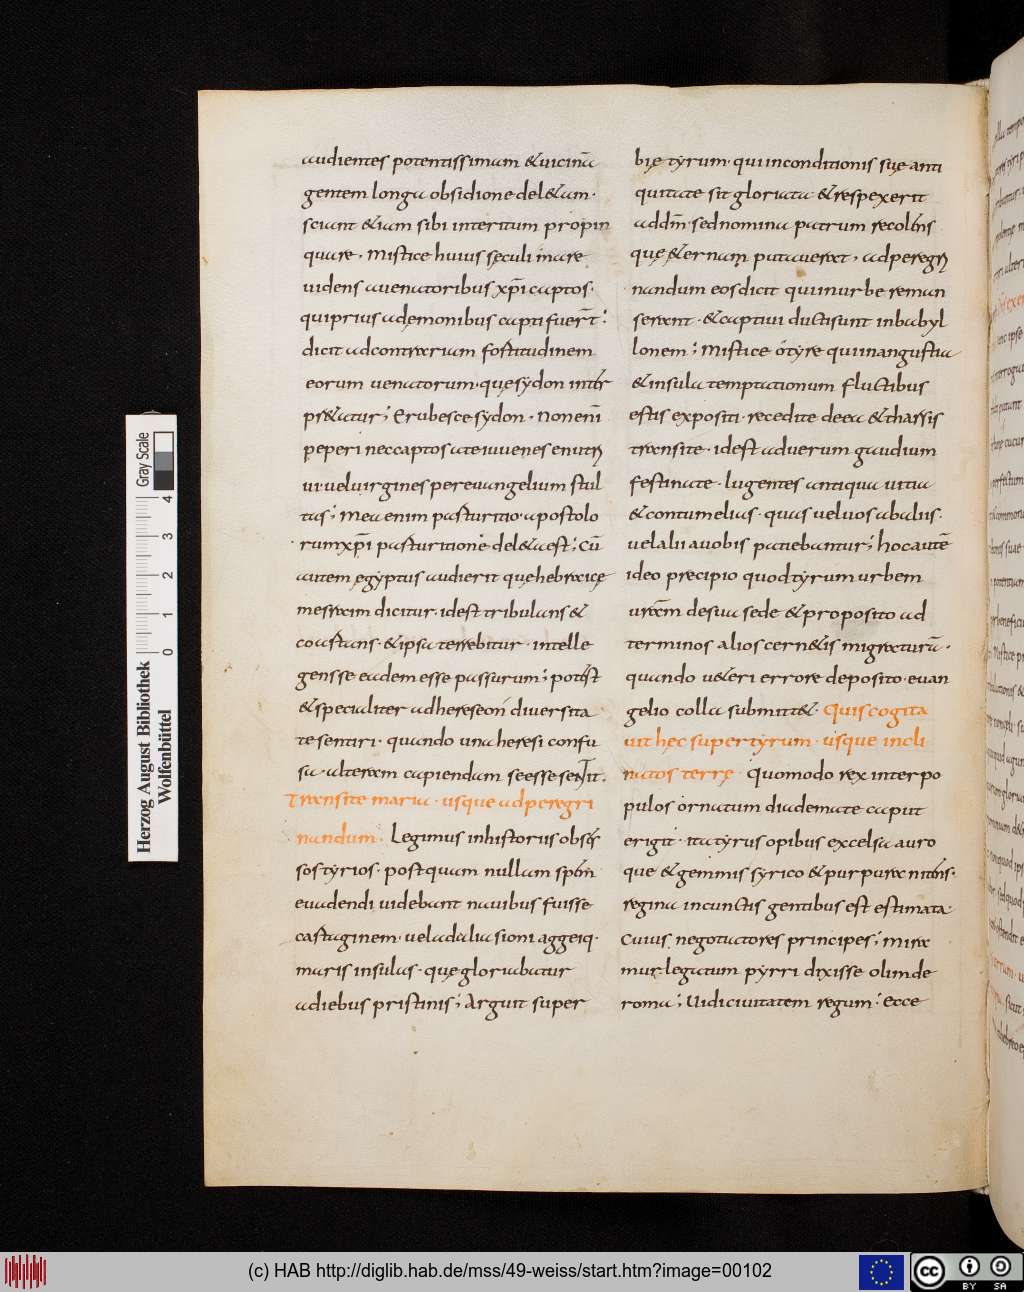 audientes potentissimam & uicinā
gentem longa obsidione del&am·
sciant &iam sibi interitum propin
quare· Mistice huius sęculi mare
uidens a uenatoribus xp̄i captos·
qui prius a dęmonibus capti fuer̄t·
dicit ad contrarium fortitudinem
eorum uenatorum· quę sydon int̄
pr&atur; Erubesce sydon· Non eni
peperi nec captos a te iuuenes enut
ui uel uirgines per euangelium stul
tas; Mea enim parturitio apostolo
rum xp̄i parturitione del&a est; Cū
autem ęgyptus audierit quę hebraicę
mesraim dicitur· id est tribulans &
coartans· & ipsa terrebitur· intelle
gens se eadem esse passurum; potest
& specialiter ad hereseon diuersita
te sentiri· quando una heresi confu
sa· alteram capiendam se esse sentit.
Transite maria· usque ad peregri
nandum· Legimus in historiis obses
sos tyrios· postquam nullam spem
euadendi uidebant nauibus fuisse
cartaginem· uel ad alia sionii aggeiq·
maris insulas· quę gloriabatur
a diebus pristinis; Arguit super
bię tyrum· qui in conditionis suę anti
quitate sit gloriata & respexerit
ad dn̄m· sed nomina patrum recolens
quę & ernam putauerat, ad peregri
nandum eos dicit qui in urbe reman
serant· & captiui ducti sunt in babyl
lonem; Mistice ó tyre qui in angustia
& insula temptationum fluctibus
estis expositi· recedite de ea & tharsis
transite· id est ad uerum gaudium
festinate· lugentes antiqua uitia
& contumelias· quas uel uos ab aliis·
uel alii a uobis patiebantur; hoc autē
ideo precipio quod tyrum urbem
uram de sua sede & proposito ad
terminos alios cern&is migraturā·
quando u&eri errore deposito· euan
gelio colla submitt&· Quis cogita
uit hęc super tyrum· usque incli
natos terrę· Quomodo rex inter po
pulos ornatum diademate caput
erigit· ita tyrus opibus excelsa auro
que & gemmis syrico & purpura nitens·
regina in cunctis gentibus est estimata·
Cuius negotiatores principes; mira
mur legatum pyrri dixisse olim de
roma; Uidi ciuitatem regum; Ecce
Herzog August Bibliothek
Wolfenbüttel
0 1 2 3 4
Gray Scale
(c) HAB http://diglib.hab.de/mss/49-weiss/start.htm?image=00102
cc BY SA